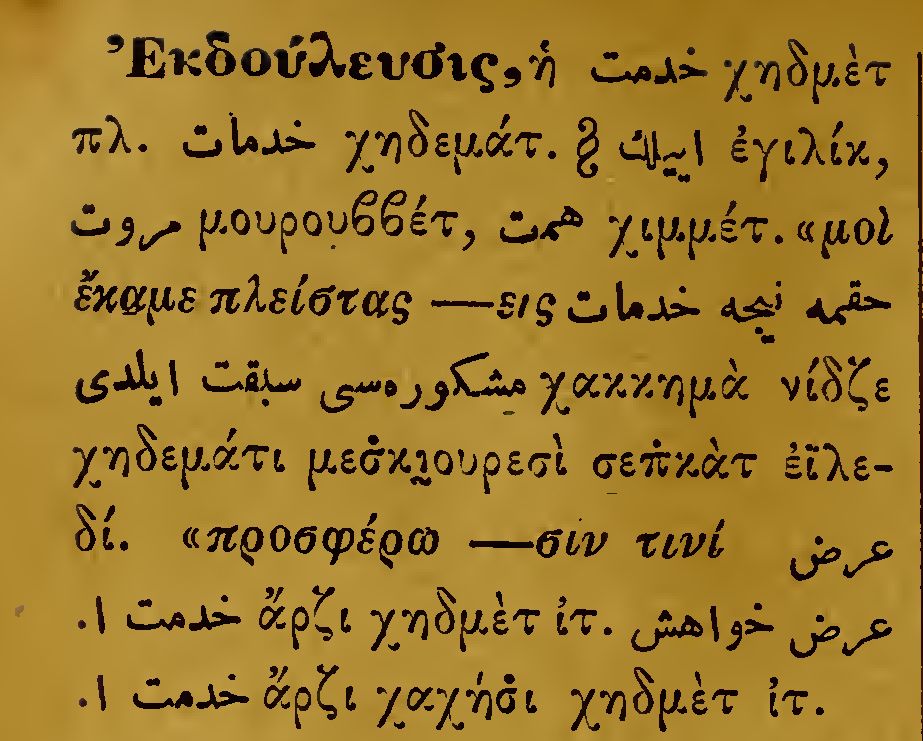 Ἐκδούλευσις, ἡ خدمت χηδμὲτ
πλ. خدمات χηδεμάτ. § اييلك ἐγιλίκ,
مروت μουρουϐϐέτ, همت χιμμέτ. «μοὶ
ἔκαμε πλείστας —εις حقمه نيچه خدمات
مشكوره‌سى سبقت ايلدى χακκημὰ νίδζε
χηδεμάτι μεσ̇κι̮ουρεσὶ σεπ̇κὰτ ἐϊλε-
δί. «προσφέρω —σιν τινί عرض
خدمت ا. ἄρζι χηδμὲτ ἰτ. عرض خواهش
خدمت ا. ἄρζι χαχήσ̇ι χηδμὲτ ἰτ.